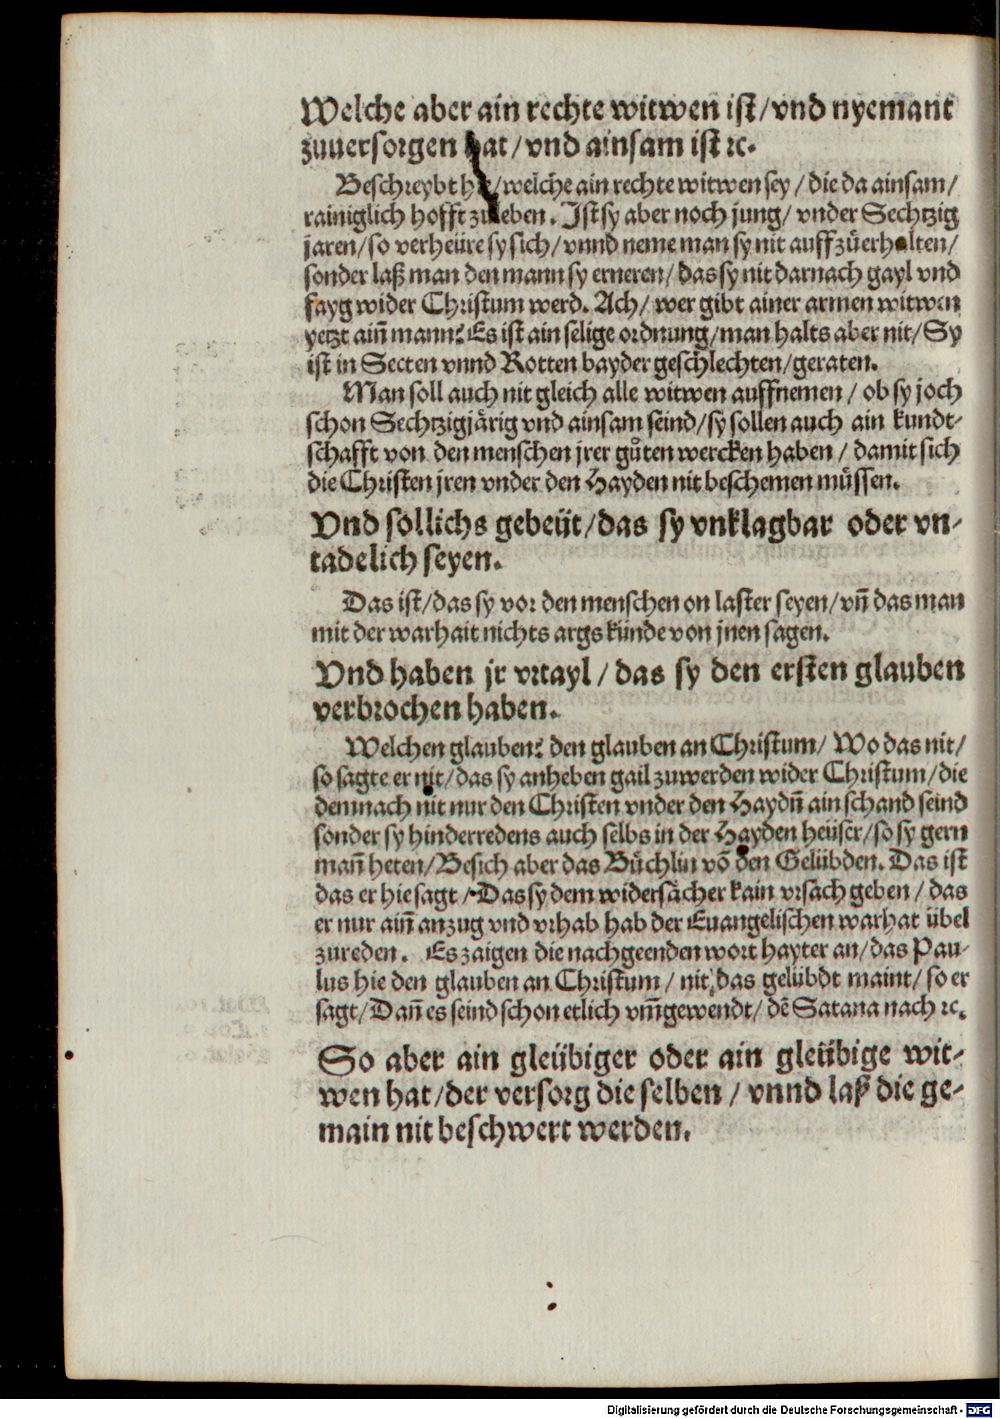 Welche aber ain rechte witwen ist/vnd nyemant
zuuersorgen hat/vnd ainsam ist ꝛc.
Beschreybt /welche ain rechte witwen sey/die da ainsam/
rainiglich hofft zu leben. Ist sy aber noch jung/vnder Sechtzig
jaren/so verheüre sy sich/vnnd neme man sy nit auffzůerhalten/
sonder laß man den mann sy erneren/das sy nit darnach gayl vnd
fayg wider Christum werd. Ach/wer gibt ainer armen witwen
yetzt ain̄ mann? Es ist ain selige ordnung/man halts aber nit/Sy
ist in Secten vnnd Rotten bayder geschlechten/geraten.
Man soll auch nit gleich alle witwen auffnemen/ob sy joch
schon Sechtzigjårig vnd ainsam seind/sy sollen auch ain kundt-
schafft von den menschen jrer gůten wercken haben/damit sich
die Christen jren vnder den Hayden nit beschemen müssen.
Vnd sollichs gebeüt/das sy vnklagbar oder vn-
tadelich seyen.
Das ist/das sy vor den menschen on laster seyen/vn̄ das man
mit der warhait nichts args künde von jnen sagen.
Vnd haben jr vrtayl/das sy den ersten glauben
verbrochen haben.
Welchen glauben? den glauben an Christum/Wo das nit/
so sagte er nit/das sy anheben gail zuwerden wider Christum/die
demnach nit nur den Christen vnder den Haydn̄ ain schand seind
sonder sy hinderredens auch selbs in der Hayden heüser/so sy gern
man̄ heten/Besich aber das Büchlin võ den Gelübden. Das ist
das er hie sagt/Das sy dem widersächer kain vrsach geben/das
er nur ain̄ anzug vnd vrhab hab der Euangelischen warhat übel
zureden. Es zaigen die nachgeenden wort hayter an/das Pau-
lus hie den glauben an Christum/nit das gelübdt maint/so er
sagt/Dan̄ es seind schon etlich vm̄gewendt/dẽ Satana nach ꝛc.
So aber ain gleübiger oder ain gleübige wit-
wen hat/der versorg die selben/vnnd laß die ge-
main nit beschwert werden.
Digitalisierung gefördert durch die Deutsche Forschungsgemeinschaft - DFG